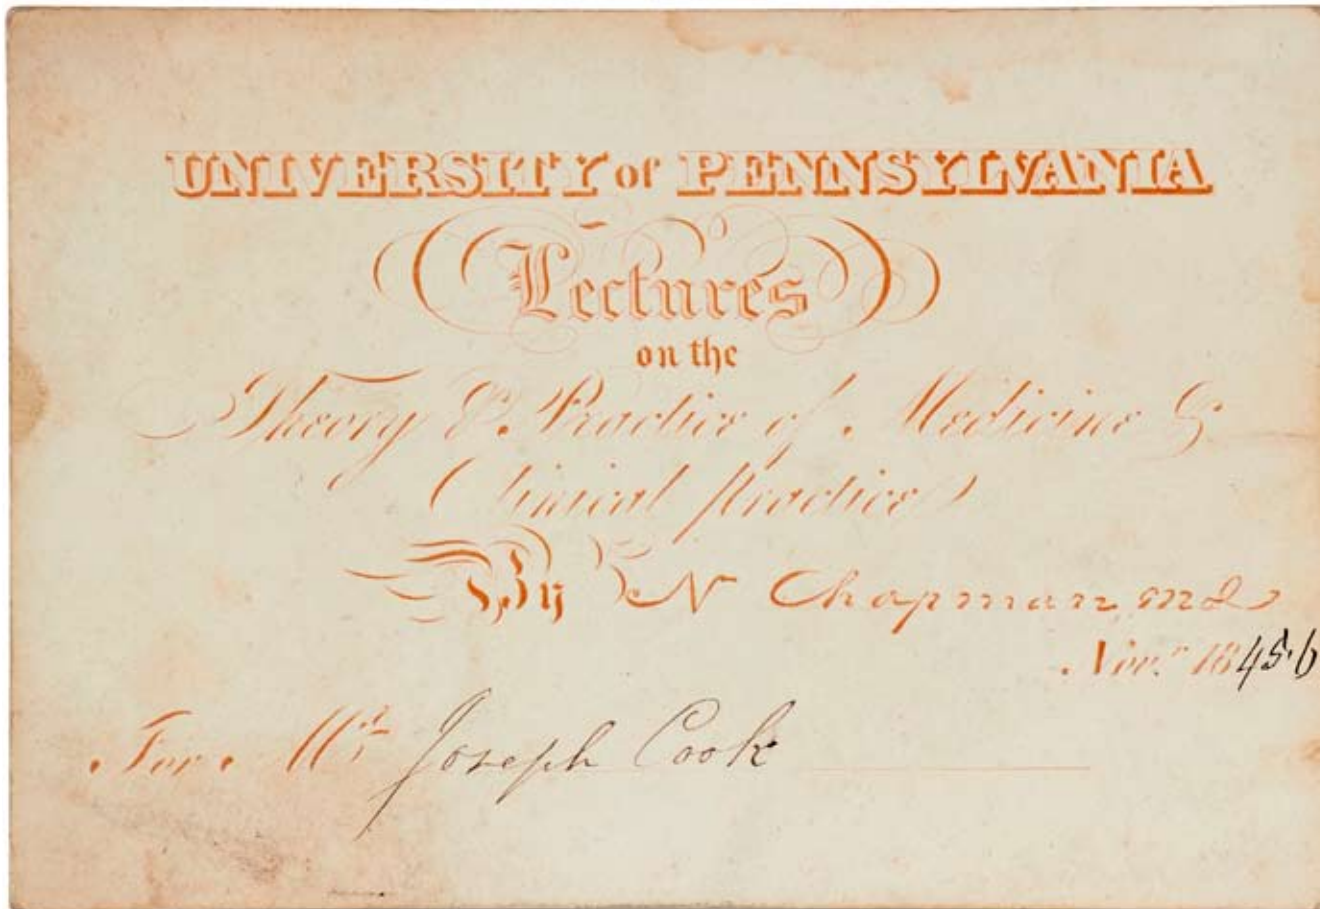 UNIVERSITY of PENNSYLVANIA
Lectures
on the
Theory & Practice of Medicine &
Clinical Practice
By N Chapman, MD
Novr. 1845.6
For Mr Joseph Cook